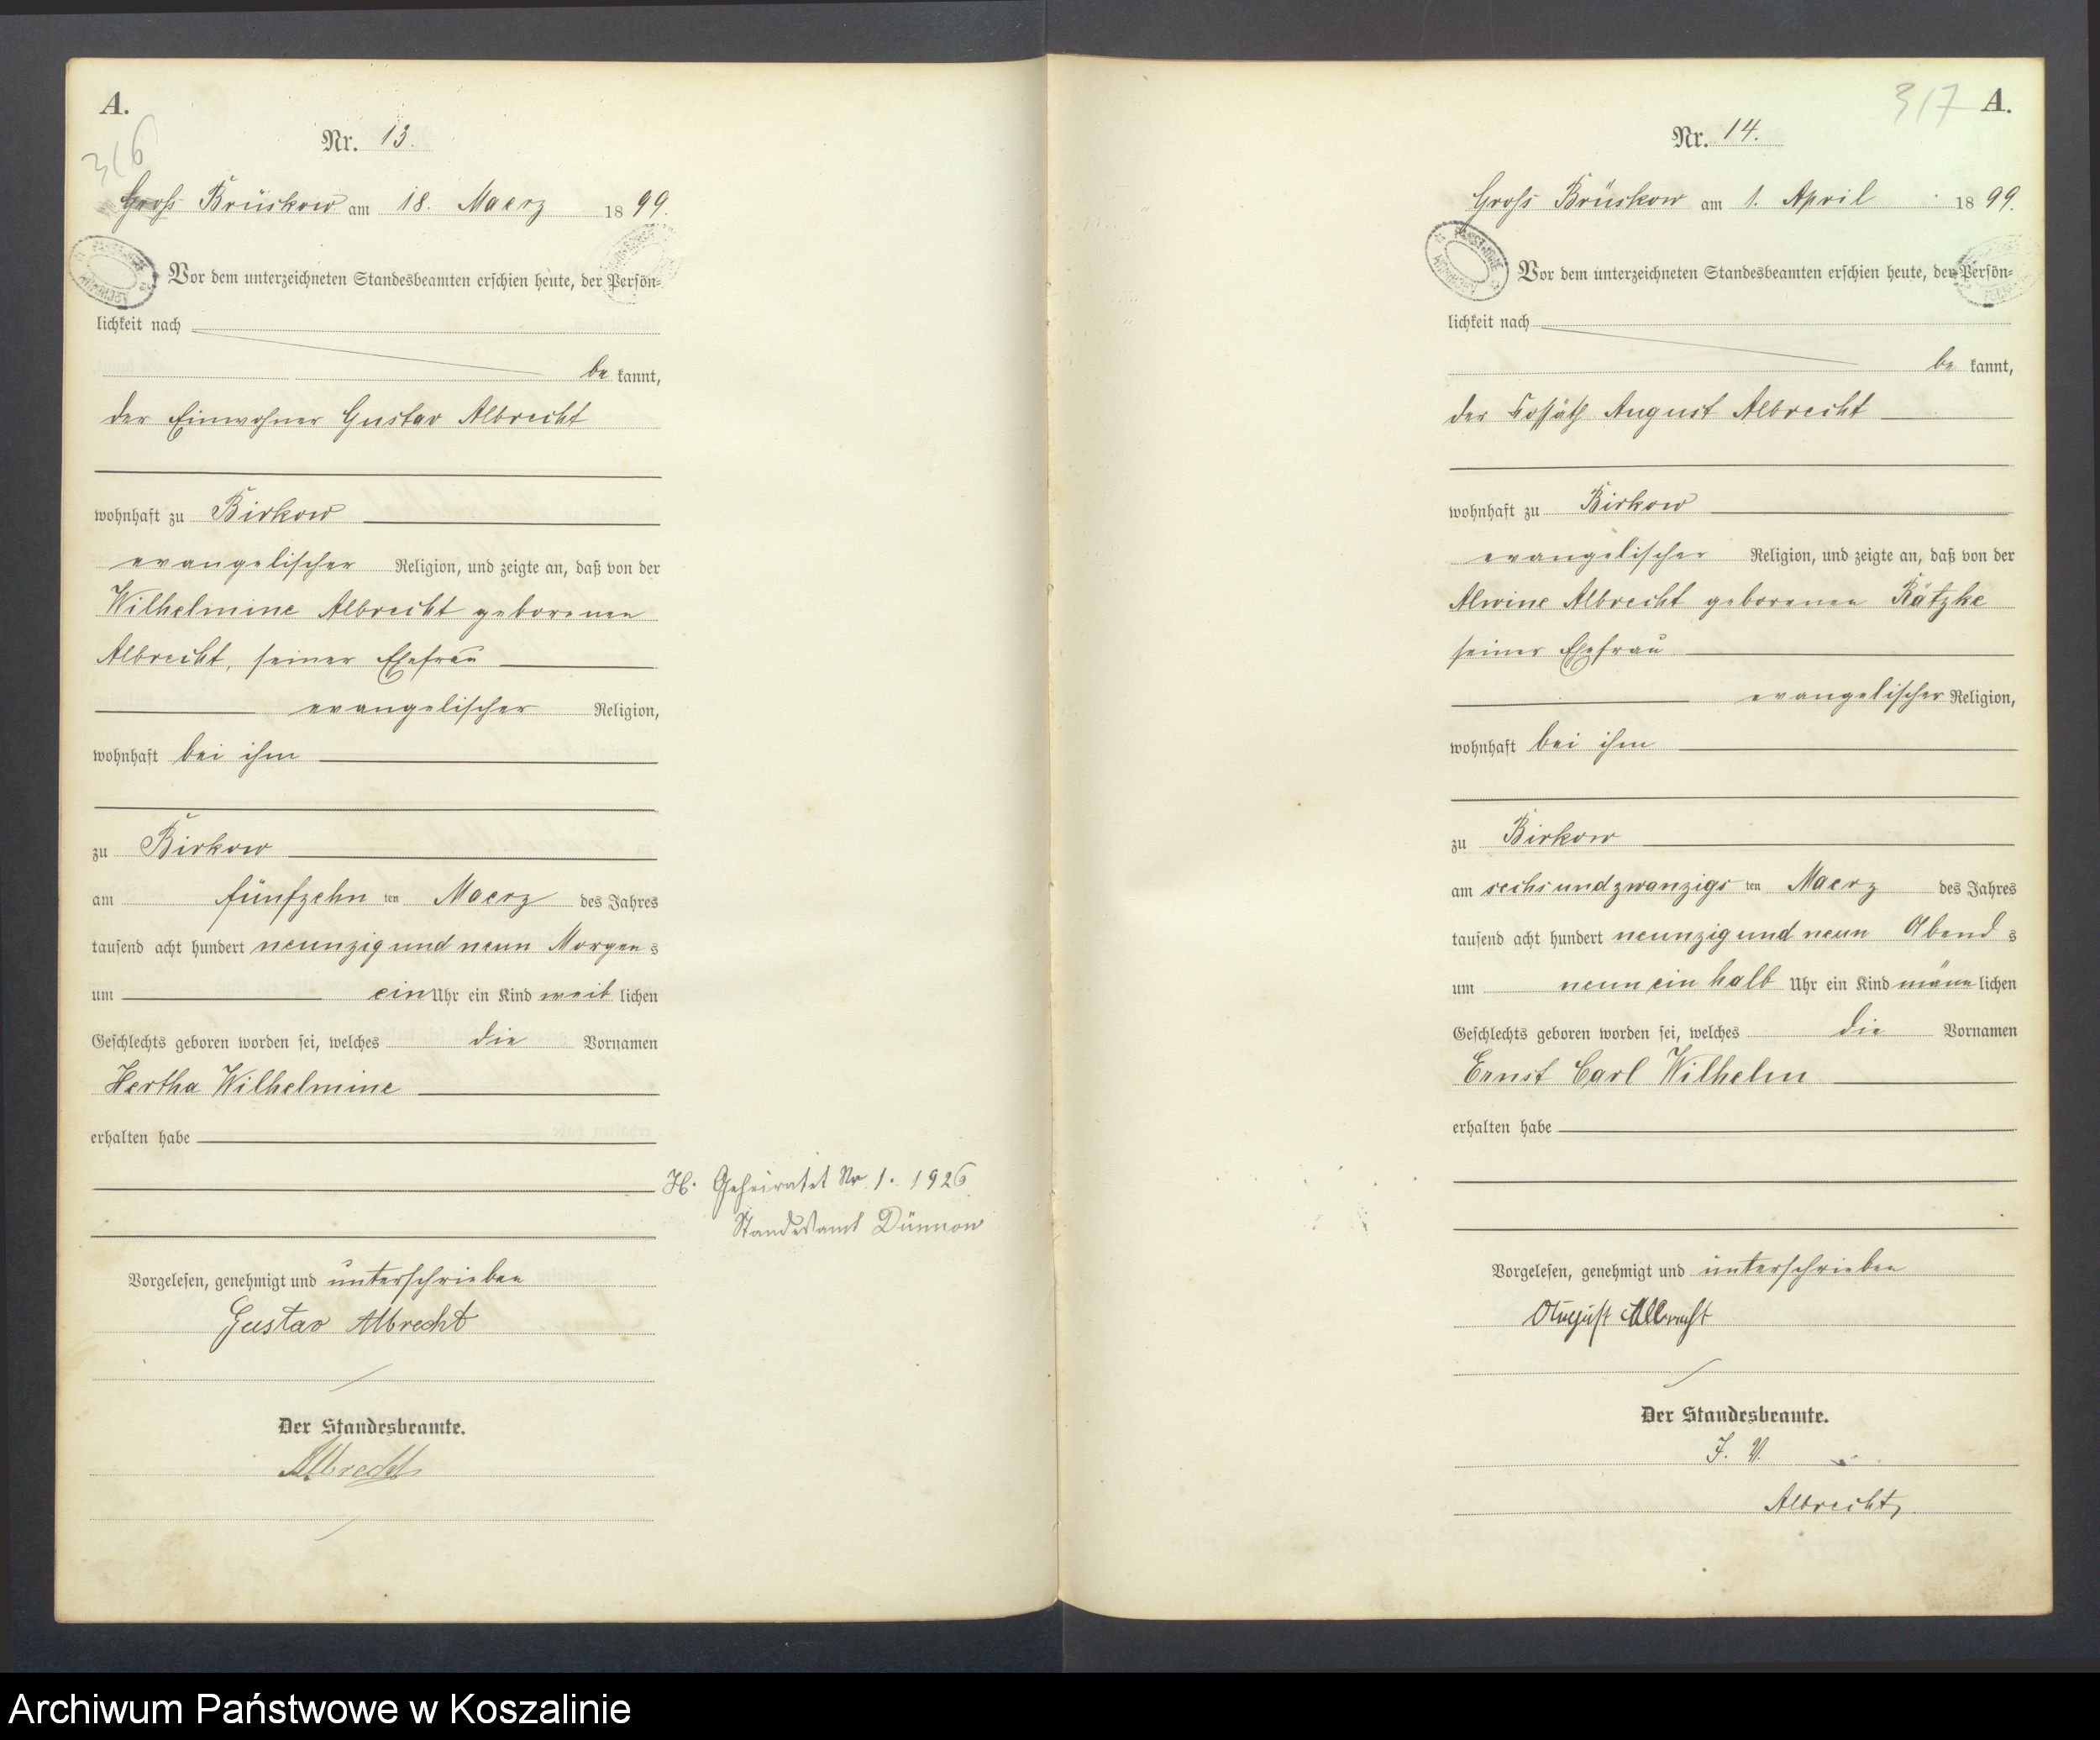 A.
316
Nr. 13.
Groß Brüskow am 18. Maerz 1899.
Vor dem unterzeichneten Standesbeamten erschien heute, der Persön=
lichkeit nach
be kannt,
der Einwohner Gustav Albrecht
wohnhaft zu Birkow
evangelischer Religion, und zeigte an, daß von der
Wilhelmine Albrecht geborenen
Albrecht, seiner Ehefrau
evangelischer Religion,
wohnhaft bei ihm
zu Birkow
am fünfzehn ten Maerz des Jahres
tausend acht hundert neunzig und neun Morgens
um ein Uhr ein Kind weiblichen
Geschlechts geboren worden sei, welches die Vornamen
Hertha Wilhelmine
erhalten habe
H. Geheiratet Nr. 1. 1926
Standesamt Dünnow
Vorgelesen, genehmigt und unterschrieben
Gustav Albrecht
Der Standesbeamte.
Albrecht
317 A.
Nr. 14.
Groß Brüskow am 1. April 1899.
Vor dem unterzeichneten Standesbeamten erschien heute, der Persön=
lichkeit nach
be kannt,
der Kossäth August Albrecht
wohnhaft zu Birkow
evangelischer Religion, und zeigte an, daß von der
Alwine Albrecht geborenen Rätzke
seiner Ehefrau
evangelischer Religion,
wohnhaft bei ihm
zu Birkow
am sechs und zwanzigs ten Maerz des Jahres
tausend acht hundert neunzig und neun Abends
um neun ein halb Uhr ein Kind männlichen
Geschlechts geboren worden sei, welches die Vornamen
Ernst Carl Wilhelm
erhalten habe
Vorgelesen, genehmigt und unterschrieben
August Albrecht
Der Standesbeamte.
I. V.
Albrecht
Archiwum Państwowe w Koszalinie